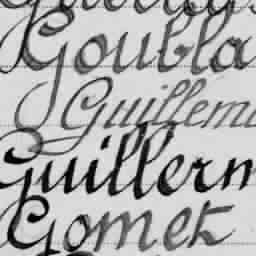 Goubla
Guillem
Guillerm
Gomez